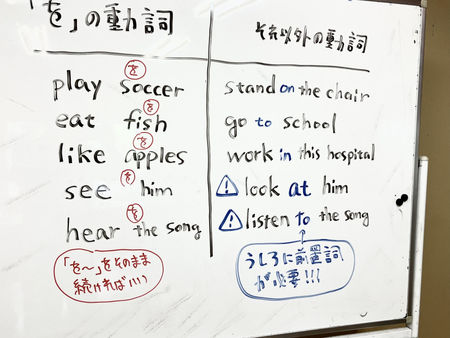 「を」の動詞
それ以外の動詞
play soccer
を
eat fish
を
like apples
を
see him
を
hear the song
を
「を〜」をそのまま
続ければいい
stand on the chair
go to school
work in this hospital
⚠ look at him
⚠ listen to the song
うしろに前置詞
が必要!!!